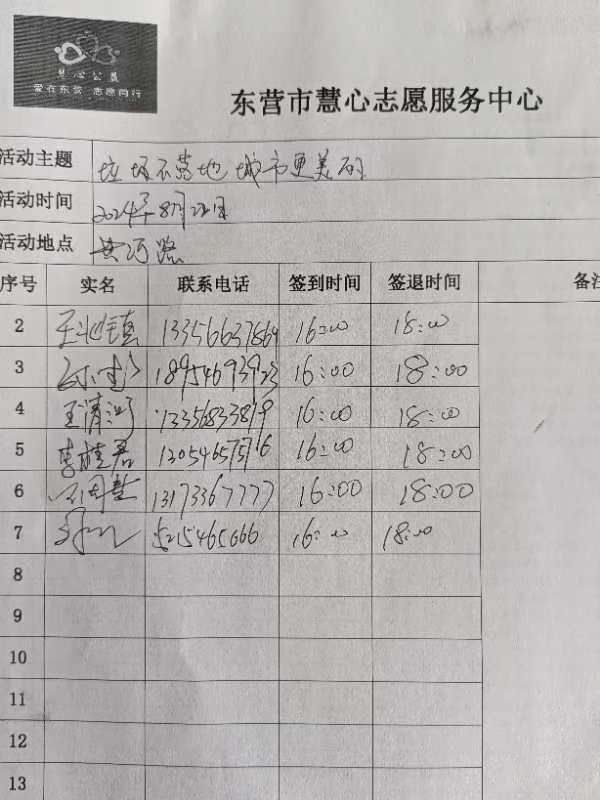 慧心公益
爱在东营 志愿同行
东营市慧心志愿服务中心
活动主题 垃圾不落地 城市更美丽
活动时间 2024年8月22日
活动地点 黄河路
序号 实名 联系电话 签到时间 签退时间 备注
2 13356637864 16:00 18:00
3 18954693923 16:00 18:00
4 王清 13356833819 16:00 18:00
5 李桂君 16:00 18:00
6 13173367777 16:00 18:00
7 16:00 18:00
8
9
10
11
12
13